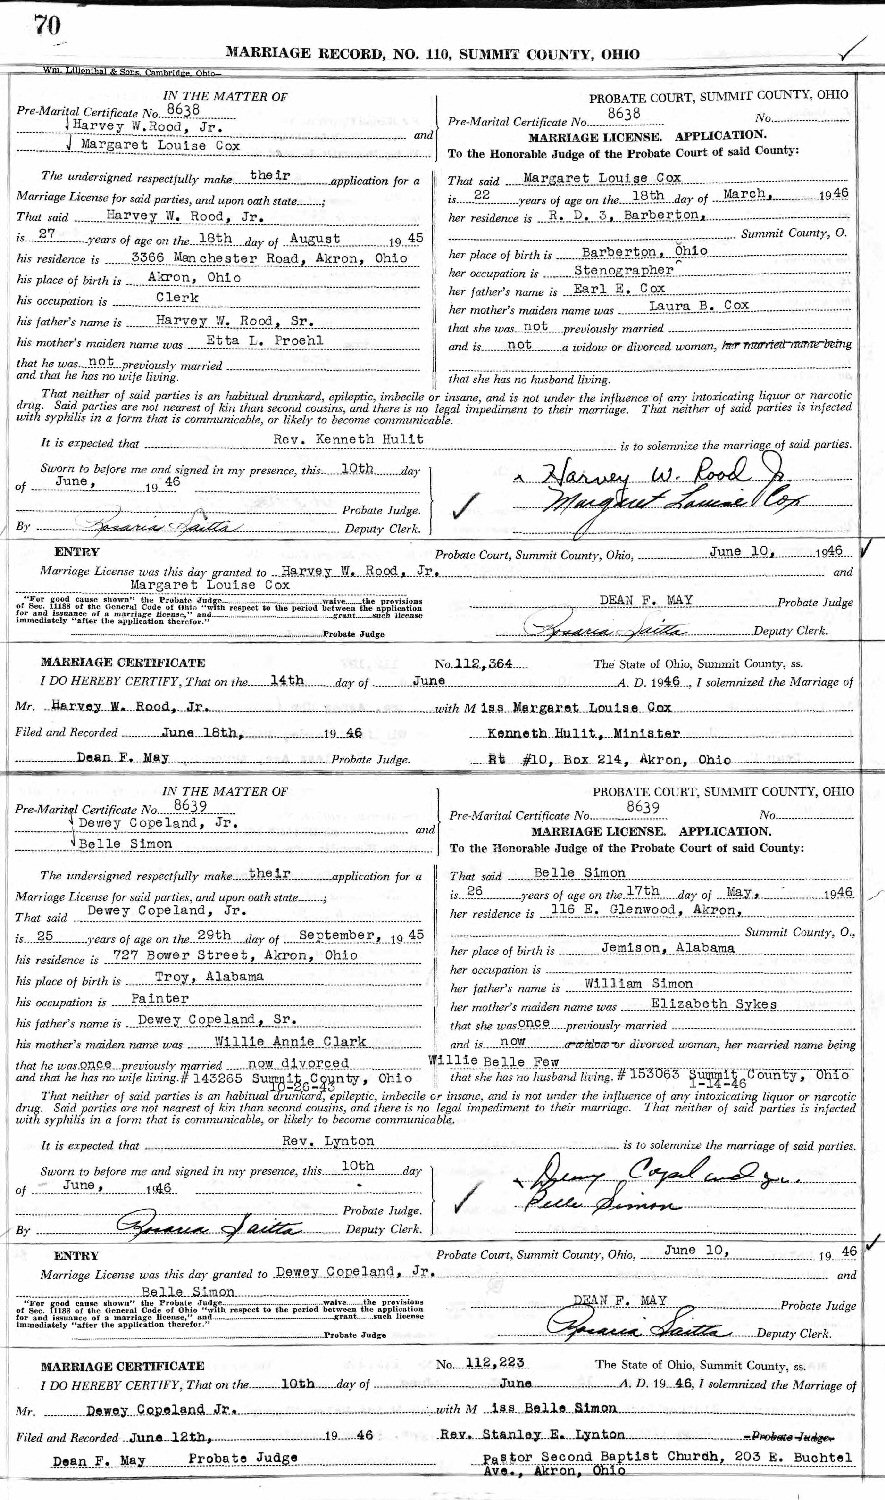 70
MARRIAGE RECORD, NO. 110, SUMMIT COUNTY, OHIO
Wm. Lilienthal & Sons, Cambridge, Ohio
IN THE MATTER OF
Pre-Marital Certificate No. 8638
Harvey W. Rood, Jr.
and
Margaret Louise Cox
The undersigned respectfully make their application for a
Marriage License for said parties, and upon oath state ;
That said Harvey W. Rood, Jr.
is 27 years of age on the 18th day of August 1945
his residence is 3366 Manchester Road, Akron, Ohio
his place of birth is Akron, Ohio
his occupation is Clerk
his father's name is Harvey W. Rood, Sr.
his mother's maiden name was Etta L. Proehl
that he was not previously married
and that he has no wife living.
PROBATE COURT, SUMMIT COUNTY, OHIO
Pre-Marital Certificate No. 8638 No.
MARRIAGE LICENSE. APPLICATION.
To the Honorable Judge of the Probate Court of said County:
That said Margaret Louise Cox
is 22 years of age on the 18th day of March, 1946
her residence is R. D. 3, Barberton,
Summit County, O.
her place of birth is Barberton, Ohio
her occupation is Stenographer
her father's name is Earl E. Cox
her mother's maiden name was Laura B. Cox
that she was not previously married
and is not a widow or divorced woman, her married name being
that she has no husband living.
That neither of said parties is an habitual drunkard, epileptic, imbecile or insane, and is not under the influence of any intoxicating liquor or narcotic
drug. Said parties are not nearest of kin than second cousins, and there is no legal impediment to their marriage. That neither of said parties is infected
with syphilis in a form that is communicable, or likely to become communicable.
It is expected that Rev. Kenneth Hulit is to solemnize the marriage of said parties.
Sworn to before me and signed in my presence, this 10th day
of June, 1946
Probate Judge.
By Rosaria Saitta Deputy Clerk.
Harvey W. Rood Jr
Margaret Louise Cox
ENTRY
Probate Court, Summit County, Ohio, June 10, 1946
Marriage License was this day granted to Harvey W. Rood, Jr. and
Margaret Louise Cox
"For good cause shown" the Probate Judge waive the provisions
of Sec. 11188 of the General Code of Ohio "with respect to the period between the application
for and issuance of a marriage license," and grant such license
immediately "after the application therefor."
Probate Judge
DEAN F. MAY Probate Judge
Rosaria Saitta Deputy Clerk.
MARRIAGE CERTIFICATE No. 112,364 The State of Ohio, Summit County, ss.
I DO HEREBY CERTIFY, That on the 14th day of June A. D. 1946, I solemnized the Marriage of
Mr. Harvey W. Rood, Jr. with Miss Margaret Louise Cox
Filed and Recorded June 18th, 1946 Kenneth Hulit, Minister
Dean F. May Probate Judge. Rt #10, Box 214, Akron, Ohio
IN THE MATTER OF
Pre-Marital Certificate No. 8639
Dewey Copeland, Jr.
and
Belle Simon
The undersigned respectfully make their application for a
Marriage License for said parties, and upon oath state ;
That said Dewey Copeland, Jr.
is 25 years of age on the 29th day of September, 1945
his residence is 727 Bower Street, Akron, Ohio
his place of birth is Troy, Alabama
his occupation is Painter
his father's name is Dewey Copeland, Sr.
his mother's maiden name was Willie Annie Clark
that he was once previously married now divorced
and that he has no wife living. # 143265 Summit County, Ohio
10-26-43
PROBATE COURT, SUMMIT COUNTY, OHIO
Pre-Marital Certificate No. 8639 No.
MARRIAGE LICENSE. APPLICATION.
To the Honorable Judge of the Probate Court of said County:
That said Belle Simon
is 26 years of age on the 17th day of May, 1946
her residence is 116 E. Glenwood, Akron,
Summit County, O.,
her place of birth is Jemison, Alabama
her occupation is
her father's name is William Simon
her mother's maiden name was Elizabeth Sykes
that she was once previously married
and is now a widow or divorced woman, her married name being
Willie Belle Few
that she has no husband living. # 153063 Summit County, Ohio
1-14-46
That neither of said parties is an habitual drunkard, epileptic, imbecile or insane, and is not under the influence of any intoxicating liquor or narcotic
drug. Said parties are not nearest of kin than second cousins, and there is no legal impediment to their marriage. That neither of said parties is infected
with syphilis in a form that is communicable, or likely to become communicable.
It is expected that Rev. Lynton is to solemnize the marriage of said parties.
Sworn to before me and signed in my presence, this 10th day
of June, 1946
Probate Judge.
By Rosaria Saitta Deputy Clerk.
Dewey Copeland Jr.
Belle Simon
ENTRY
Probate Court, Summit County, Ohio, June 10, 1946
Marriage License was this day granted to Dewey Copeland, Jr. and
Belle Simon
"For good cause shown" the Probate Judge waive the provisions
of Sec. 11188 of the General Code of Ohio "with respect to the period between the application
for and issuance of a marriage license," and grant such license
immediately "after the application therefor."
Probate Judge
DEAN F. MAY Probate Judge
Rosaria Saitta Deputy Clerk.
MARRIAGE CERTIFICATE No. 112,223 The State of Ohio, Summit County, ss.
I DO HEREBY CERTIFY, That on the 10th day of June A. D. 1946, I solemnized the Marriage of
Mr. Dewey Copeland Jr. with Miss Belle Simon
Filed and Recorded June 12th, 1946 Rev. Stanley E. Lynton Probate Judge.
Dean F. May Probate Judge Pastor Second Baptist Church, 203 E. Buchtel
Ave., Akron, Ohio